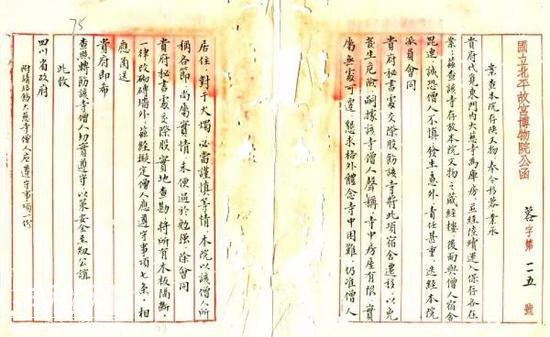 國立北平故宮博物院公函 蓉字第一一五號
案查本院存陝文物奉令移蓉業承
貴府代覓東門內大慈寺為庫房並經陸續運入保存各在
案茲查該寺存放本院文物之藏經樓後面與僧人宿舍
毘連誠恐僧人不慎發生意外責任甚重迭經本院
派員會同
貴府秘書處交際股飭該寺將此項宿舍遷移以免
發生危險嗣據該寺僧人聲稱寺中房屋有限實
屬無處可遷懇求格外體念寺中困難仍准僧人
居住對于火燭必當謹慎等情本院以該僧人所
稱各節尚屬實情未便過於勉強除會同
貴府秘書處交際股實地查勘將所有木板隔斷
一律改砌磚墻外茲經擬定僧人應遵守事項七条相
應函送
貴府即希
查照轉飭該寺僧人切實遵守以策安全至紉公誼
此致
四川省政府
附繕抄大慈寺僧人应遵守事項一份
75